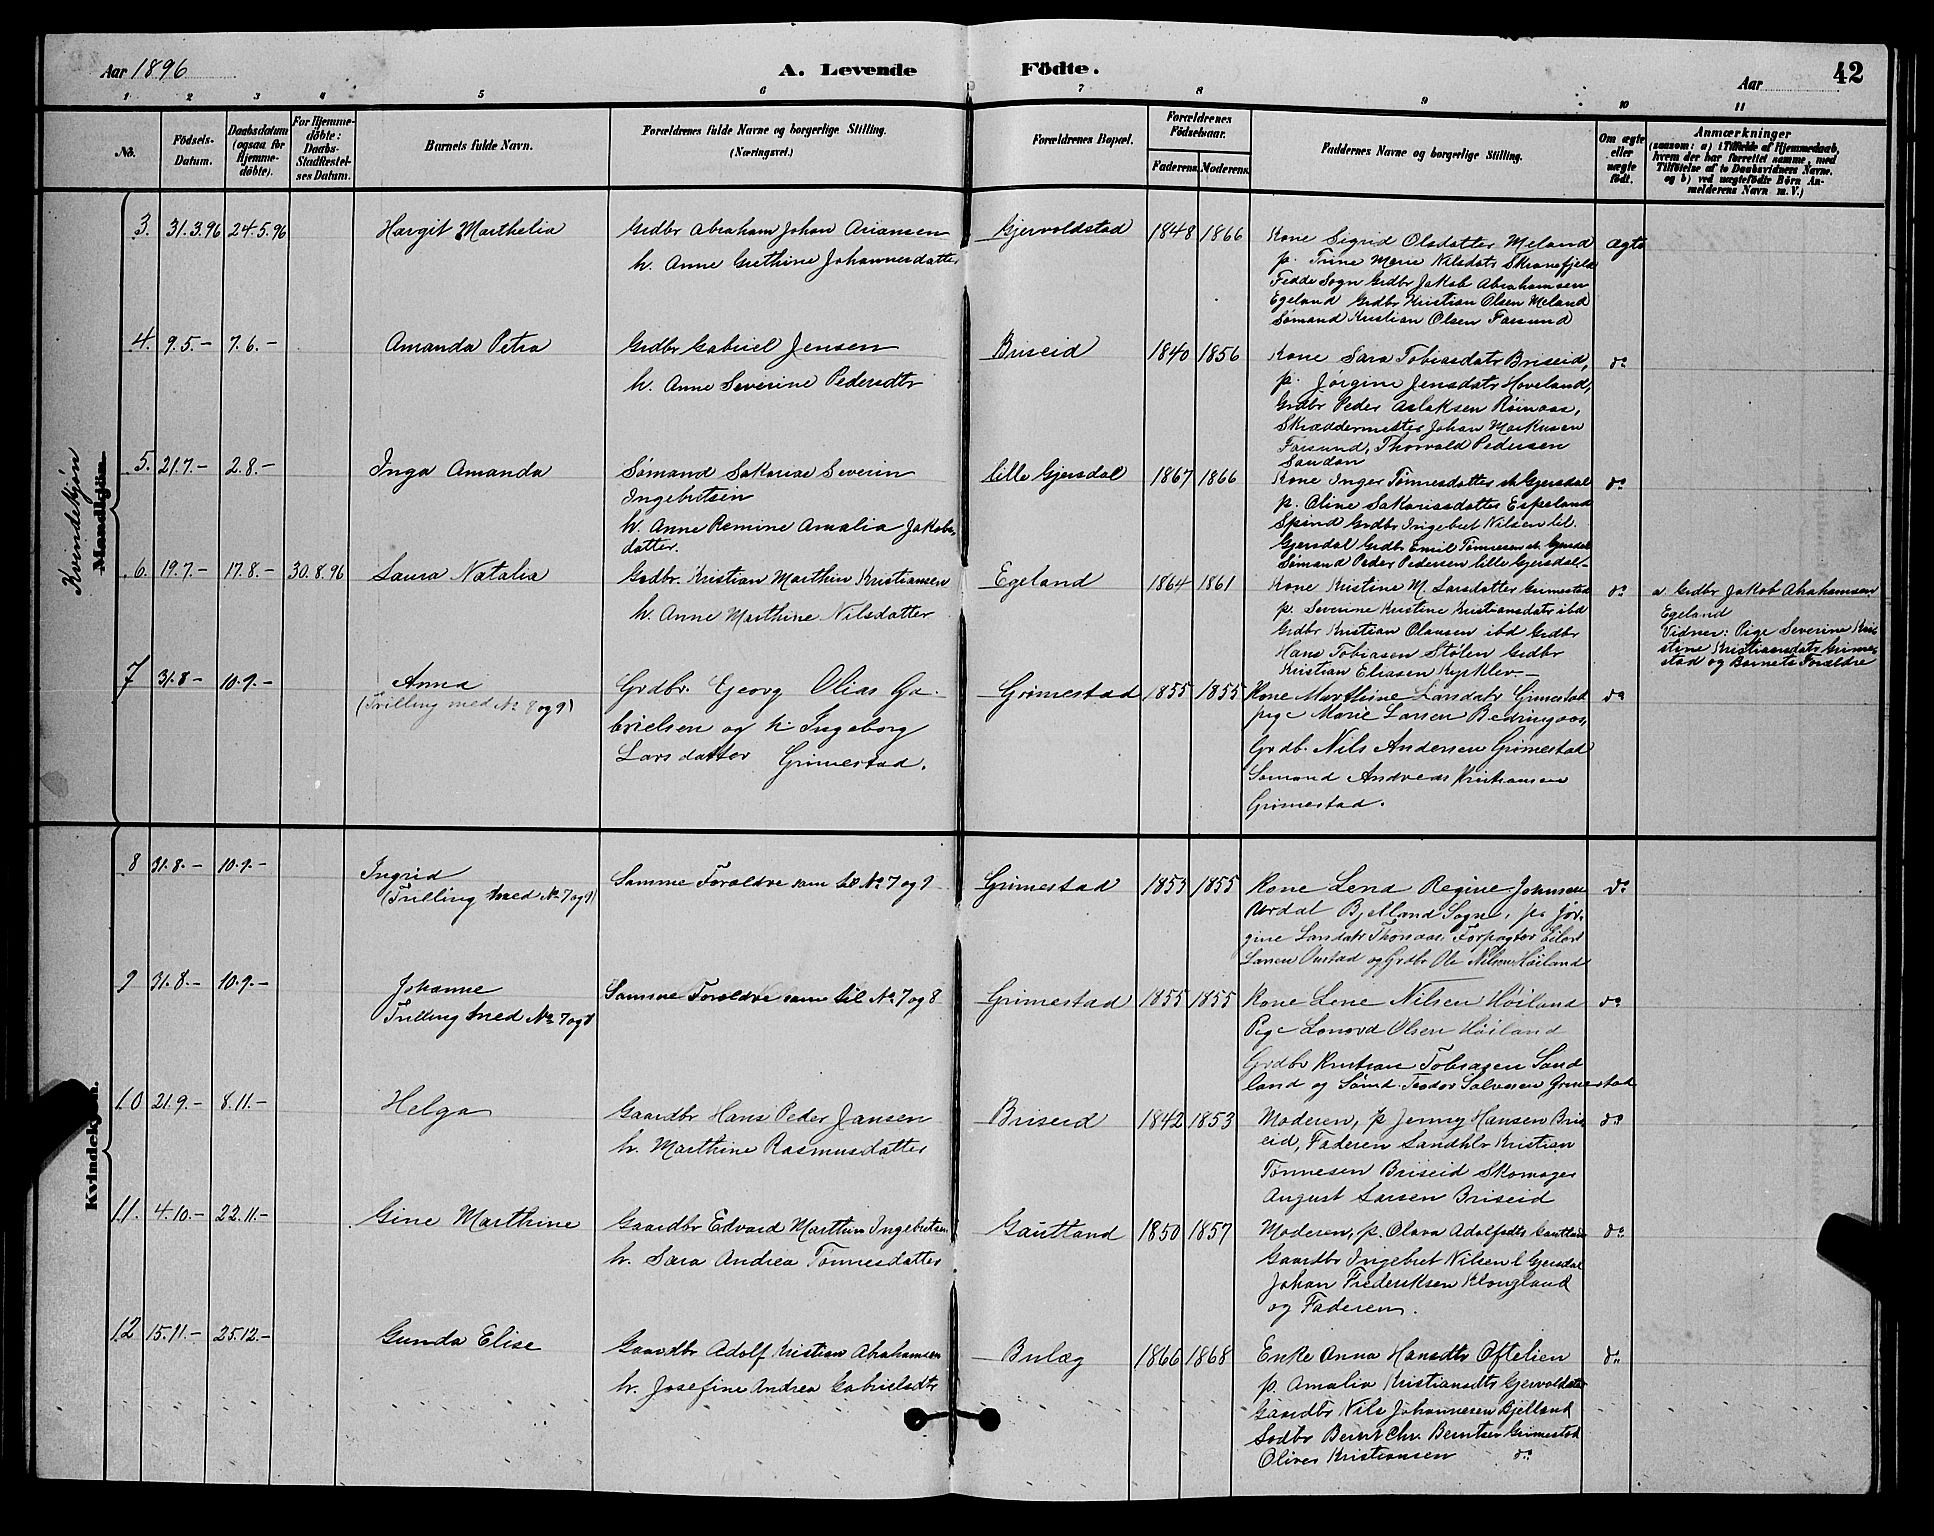 Aar 1896
A. Levende Födte.
Aar
42
1 2 3 4 5 6 7 8 9 10 11
No.
Födsels-Datum.
Daabsdatum (ogsaa for Hjemmedöbte).
For Hjemmedöbte: Daabs-Stadfestelses Datum.
Barnets fulde Navn.
Forældrenes fulde Navne og borgerlige Stilling.
(Næringsvei.)
Forældrenes Bopæl.
Forældrenes Födselsaar.
Faderens. Moderens.
Faddernes Navne og borgerlige Stilling.
Om ægte eller uægte födt.
Anmærkninger
(saasom: a) i Tilfælde af Hjemmedaab, hvem der har forrettet samme, med Tilföielse af to Daabsvidners Navne, og b) ved uægtefödte Börn Anmelderens Navn m. V.)
Kvindekjøn
Mandkjön
3. 31.3.96 24.5.96
Hargit Marthelia
Grdbr Abraham Johan Ariansen
h. Anne Grethine Johannesdatter
Gjervoldstad 1848 1866
Kone Sigrid Olsdatter Meland
p. Trine Marie Nilsdatr Skranefjeld
Fedde Sogn Grdbr Jakob Abrahamsen
Egeland Grdbr Kristian Olsen Meland
Sømand Kristian Olsen Farsund
Ægte
4. 9.5.- 7.6.-
Amanda Petra
Grdbr Gabriel Jensen
h. Anne Severine Pedersdtr
Briseid 1840 1856
Kone Sara Tobiasdatr Briseid,
p. Jørgine Jensdatr Hoveland,
Grdbr Peder Aslaksen Røinaas,
Skræddermester Johan Markusen
Farsund, Thorvald Pedersen
Sandan
do
5. 21.7.- 2.8.-
Inga Amanda
Sømand Sakarias Severin
Ingebretsen
h. Anne Romine Amalia Jakobs
datter.
lille Gjersdal 1867 1866
Kone Inger Tønnesdatter st. Gjersdal
p. Oline Sakariasdatter Espeland
Spind Grdbr Ingebret Nilsen lil.
Gjersdal Grdbr Emil Tønnesen st. Gjersdal
Sømand Peder Pedersen lille Gjersdal-
do
6. 19.7.- 17.8.- 30.8.96
Laura Natalia
Grdbr. Kristian Marthin Kristiansen
h. Anne Marthine Nilsdatter
Egeland 1864 1861
Kone Kristine M. Larsdatter Grimestad
p. Severine Kristine Kristiansdatr ibd
Grdbr Kristian Olausen ibd Grdbr
Hans Tobiasen Stølen Grdbr
Kristian Eliasen
do
a. Grdbr Jakob Abrahamsen
Egeland
Vidner: Pige Severine Kri
stine Kristiansdatr Grime
stad og Barnets Forældre
7 31.8- 10.9.-
Anna
(Trilling med No 8 og 9)
Grdbr. Georg Olias Ga
brielsen og h. Ingeborg
Larsdatter Grimestad.
Grimestad 1855 1855
Kone Marthine Larsdatr Grimestad
pige Marie Larsen
Grdb. Nils Andersen Grimestad
Sømand Andreas Kristiansen
Grimestad.
do
Kvindekjön.
8 31.8.- 10.9.-
Ingrid
(Trilling med No 7 og 9)
Samme Foraldre som til No 7 og 9
Grimestad 1855 1855
Kone Lena Regine Johnsen
Urdal Bjelland Sogn, pe Jør-
gine Larsdatr Forpagter
Larsen og Grdbr Ole Nilsen Høiland
do
9 31.8- 10.9.-
Johanne
Trilling med No 7 og 8
Samme Foraldre som til No 7 og 8
Grimestad 1855 1855
Kone Lene Nilsen Høiland
Pige Olsen Høiland
Grdbr Kristian Tobiasen Sand
land og Sømd Teodor Salvesen Grimestad
do
10 21.9.- 8.11.-
Helga
Gaardbr Hans Peder Jansen
h. Marthine Rasmusdatter
Briseid 1842 1853
Moderen, p Jenny Hansen Bris
eid, Faderen Landhlr Kristian
Tønnesen Briseid Skomager
August Larsen Briseid
do
11. 4.10.- 22.11.-
Gine Marthine
Gaardbr Edvard Marthin Ingebretsen
h. Sara Andrea Tønnesdatter
Gautland 1850 1857
Moderen, p. Olava Adolfsdtr Gautland
Gaardbr Ingebret Nilsen l Gjersdal
Johan Frederiksen Klungland
og Faderen.
do
12 15.11.- 25.12.-
Gunda Elise
Gaardbr Adolf Kristian Abrahamsen
h. Josefine Andrea Gabrielsdtr
Bulæg 1866 1868
Enke Anna Hansdtr Oftelien
p. Amalia Kristiansdtr Gjervoldstad
Gaardbr Nils Johannesen Bjelland
Sodbr Bernt Chr. Berntsen Grimestad
Oliver Kristiansen do
do